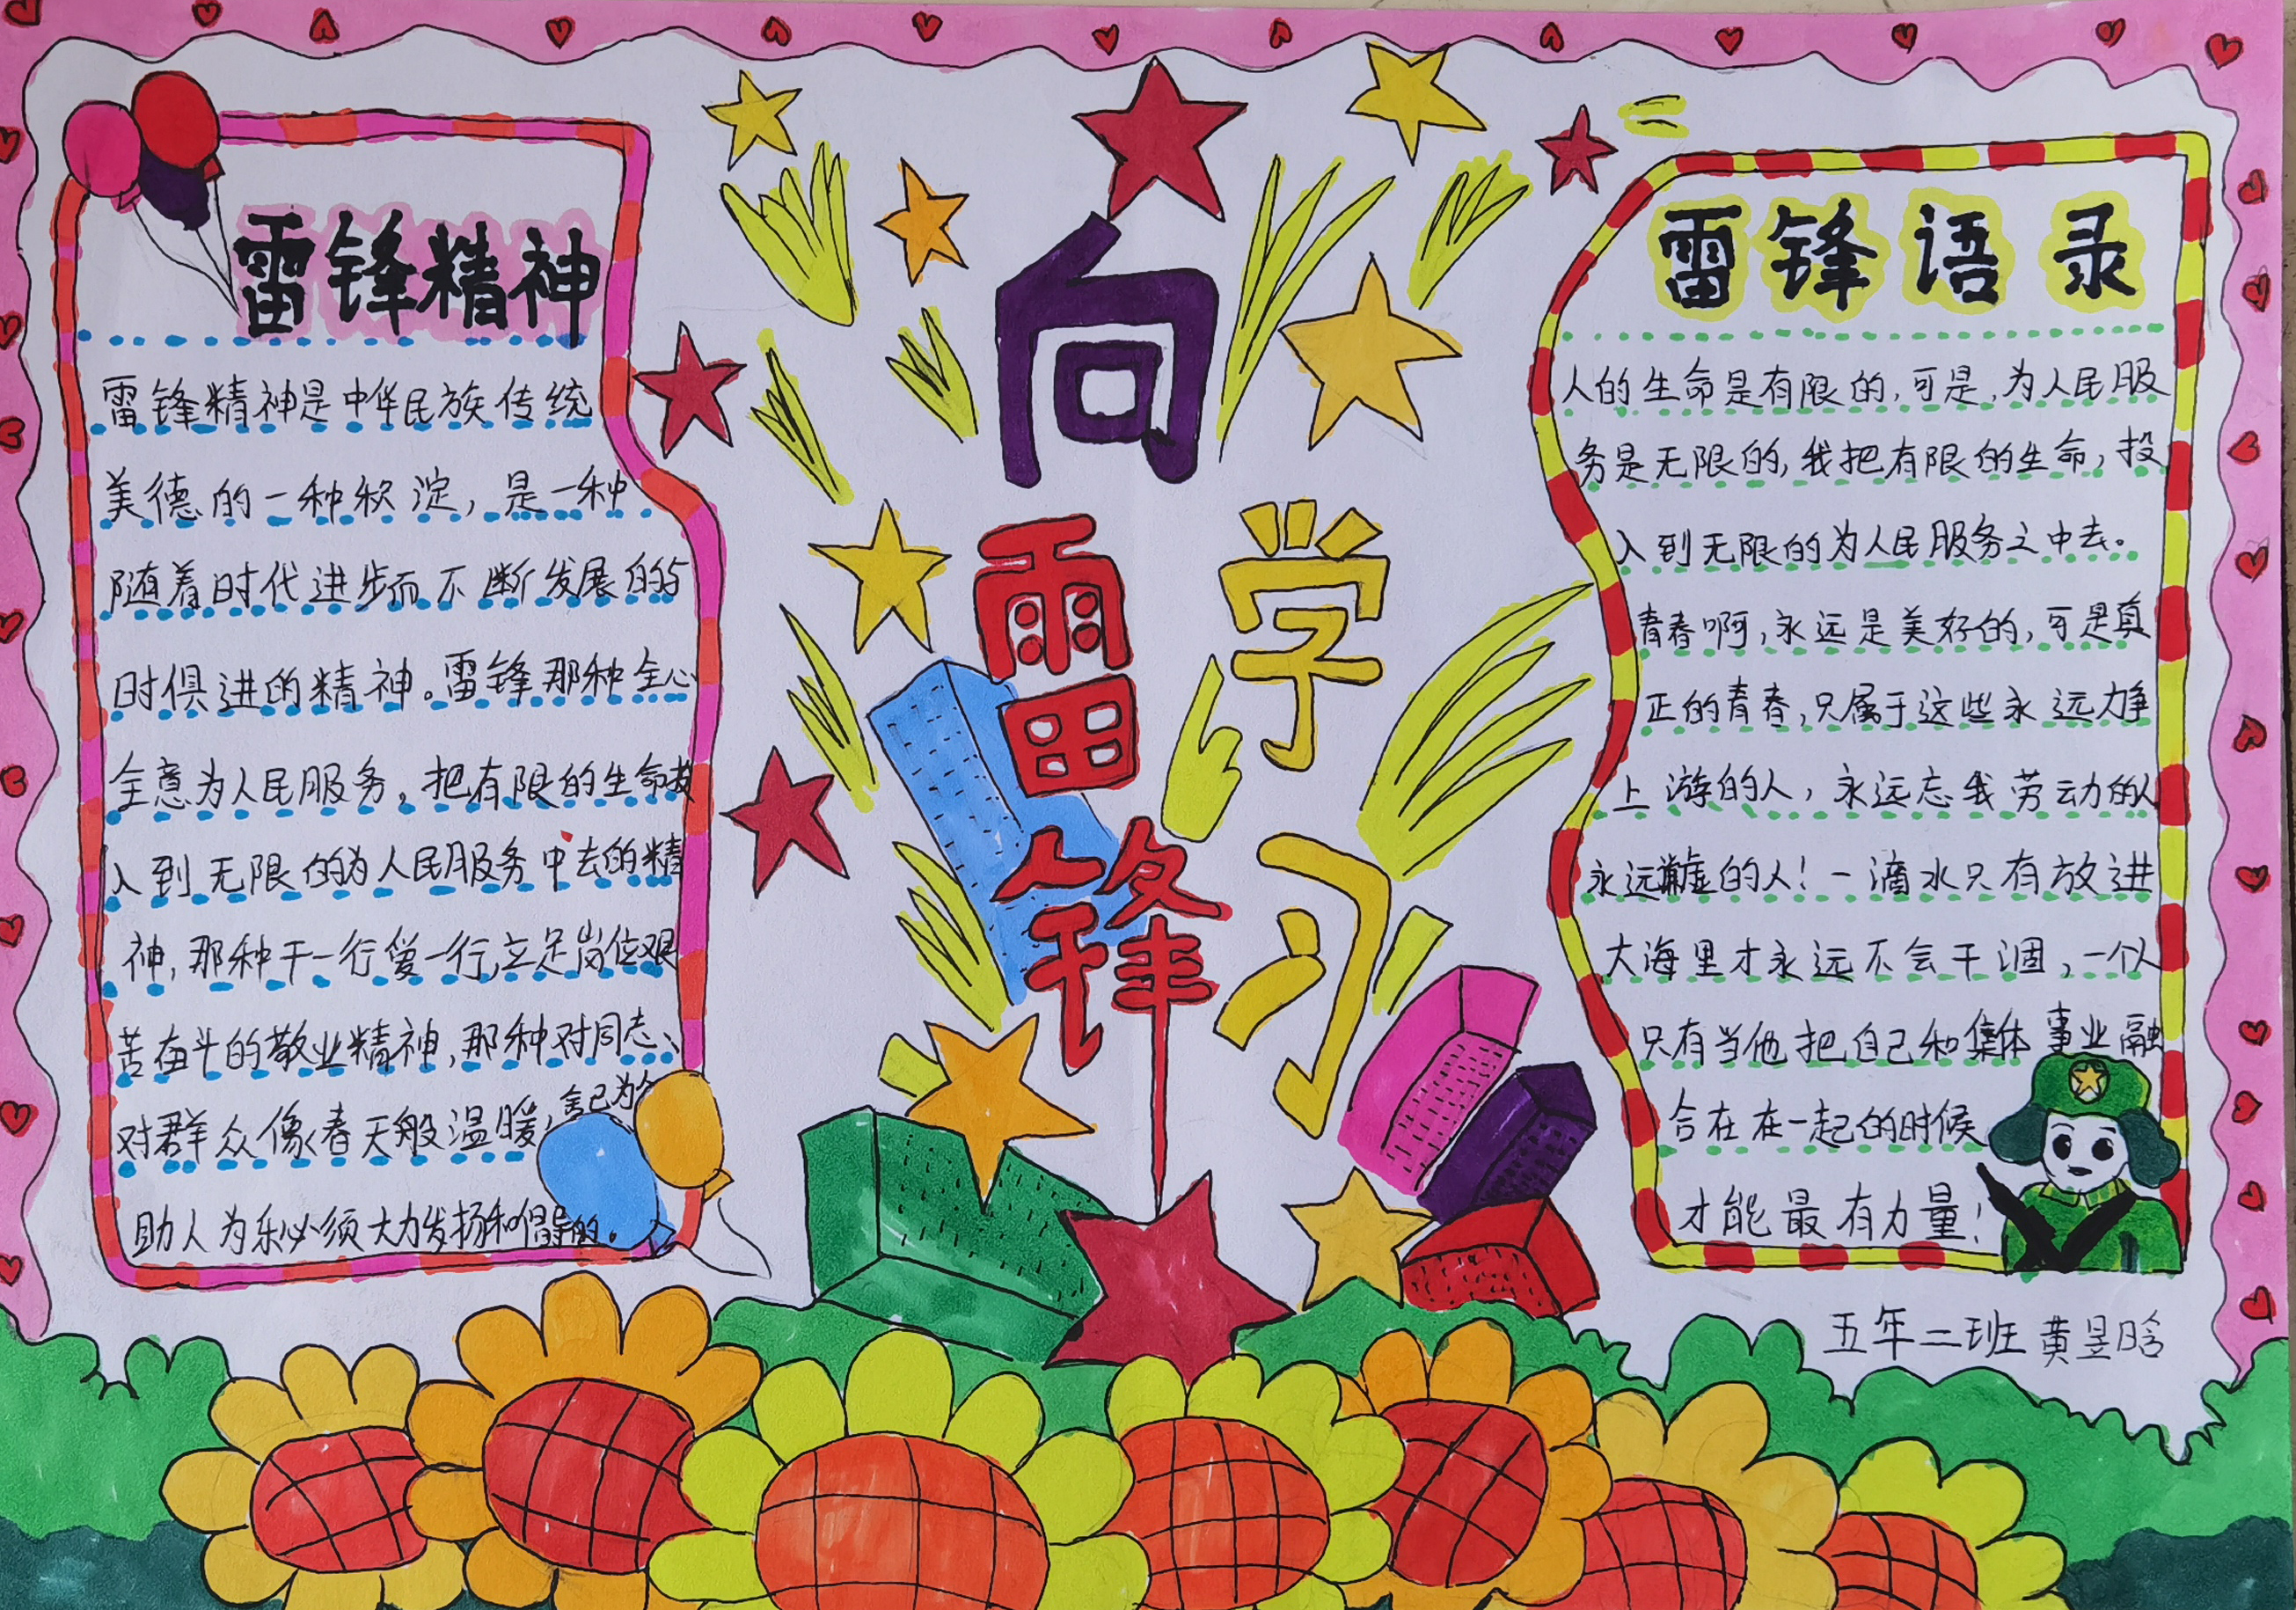 雷锋精神
雷锋精神是中华民族传统
美德的一种积淀，是一种
随着时代进步而不断发展的与
时俱进的精神。雷锋那种全心
全意为人民服务，把有限的生命投
入到无限的为人民服务中去的精
神，那种干一行爱一行，立足岗位艰
苦奋斗的敬业精神，那种对同志、
对群众像春天般温暖，舍己为人
助人为乐必须大力发扬和倡导的。
向
雷锋
学习
雷锋语录
人的生命是有限的，可是，为人民服
务是无限的，我把有限的生命，投
入到无限的为人民服务之中去。
青春啊，永远是美好的，可是真
正的青春，只属于这些永远力争
上游的人，永远忘我劳动的人
永远谦虚的人！一滴水只有放进
大海里才永远不会干涸，一个人
只有当他把自己和集体事业融
合在在一起的时候
才能最有力量！
五年二班 黄昱晗